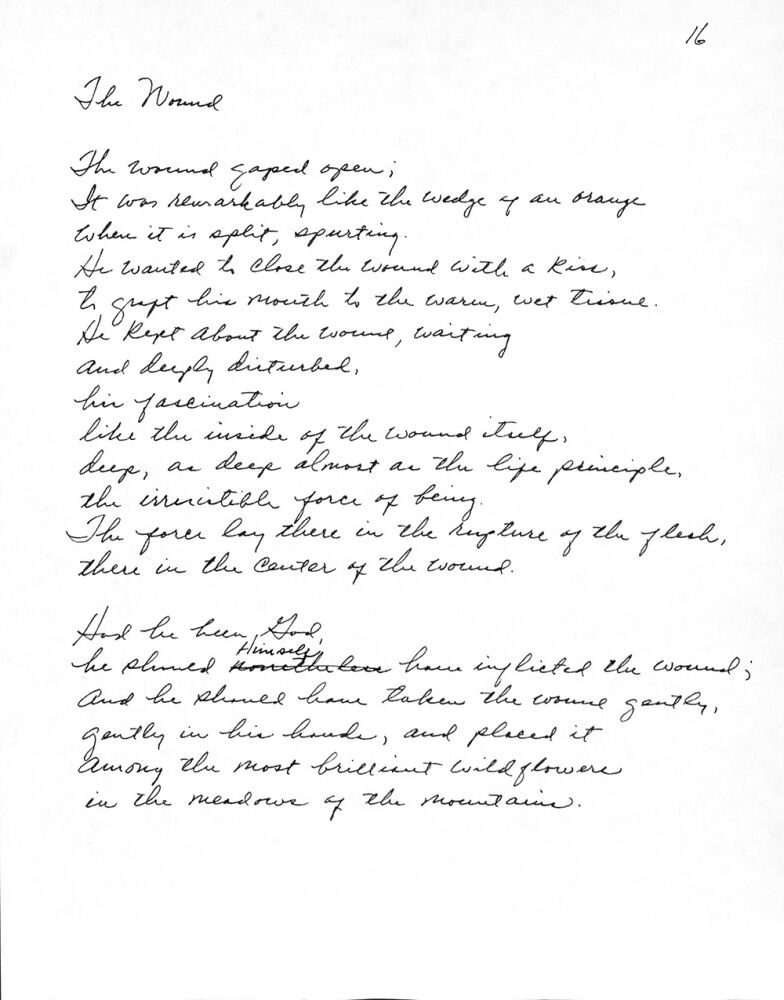 16
The Wound
The wound gaped open;
It was remarkably like the wedge of an orange
when it is split, spurting.
He wanted to close the wound with a kiss,
to graft his mouth to the warm, wet tissue.
He kept about the wound, waiting
and deeply disturbed,
his fascination
like the inside of the wound itself,
deep, as deep almost as the life principle,
the irresistible force of being.
The force lay there in the rupture of the flesh,
there in the center of the wound.
Had he been God,
Himself
he should nonetheless have inflicted the wound;
and he should have taken the wound gently,
gently in his hands, and placed it
among the most brilliant wildflowers
in the meadows of the mountains.